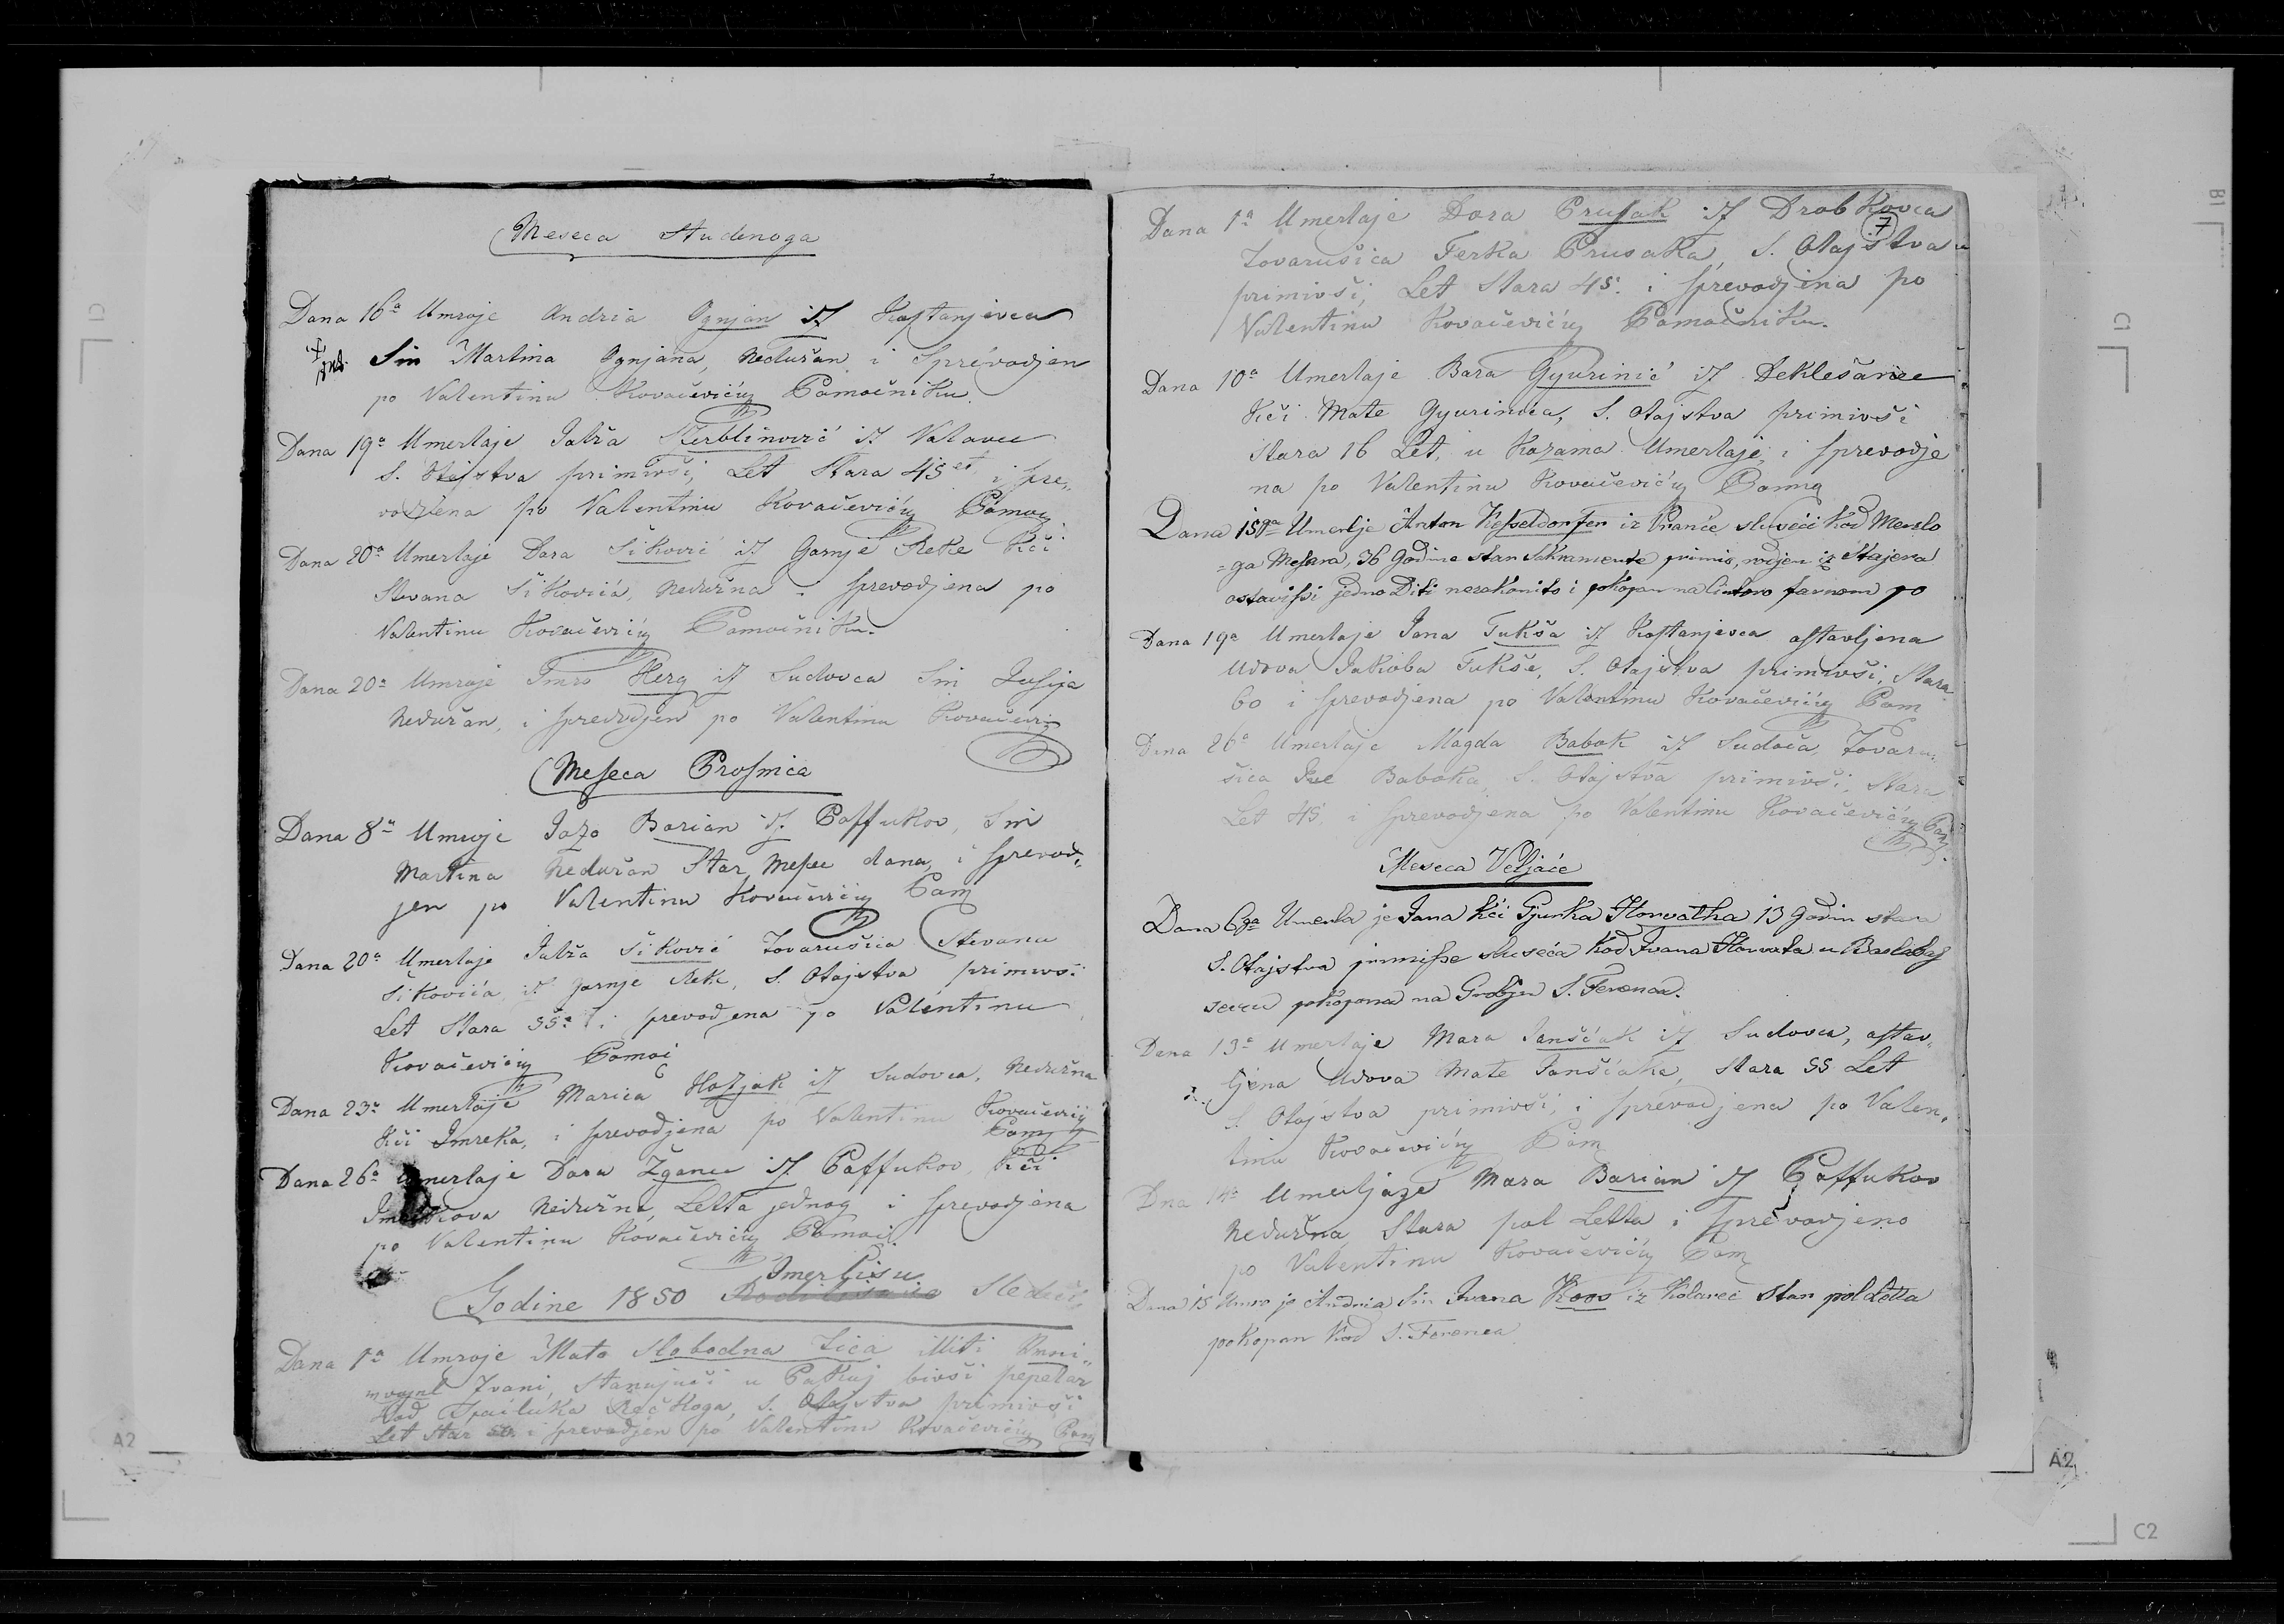 Meseca Studenoga
Dana 16a Umroje Andria Ognjan iz Kostanjevca
Sin Martina Ognjana, Nedužan i Sprevodjen
po Valentinu Kovačeviću Pomočniku.
Dana 19a Umerlaje Jalža Skerblinović iz Valovca
S. Otajstva primivši, Let Stara 45 et i spre„
vodjena po Valentinu Kovačeviću Pomoć
Dana 20a Umerlaje Dora Šiković iz Gornje Reke Kči
Stevana Šikovića, Nedužna i sprevodjena po
Valentinu Kovačeviću Pomočniku.
Dana 20a Umroje Imro Herg iz Sudovca Sin Josipa
Nedužan, i sprevodjen po Valentinu Kovačević
Meseca Prosinca
Dana 8a Umroje Jozo Barian iz Paffukov, Sin
Martina Nedužan Star Mesec dana, i sprevod„
jen po Valentinu Kovačeviću Pom
Dana 20a Umerlaje Jalža Šiković Tovarušica Stevana
Šikovića iz gornje Reke, S. Otajstva primivši
Let Stara 55a i prevodjena po Valentinu
Kovačeviću Pomoć
Dana 23a Umerlaje Marica Hozjak iz Sudovca, Nedužna
Kči Imreka, i sprevodjena po Valentinu Kovačeviću
Pom
Dana 26a Umerlaje Dora Žganec iz Paffukov, Kči
Nedužna, Letta jednog i sprevodjena
po Valentinu Kovačeviću Pomoć
Umerlisu
Godine 1850 Sledeći
Dana 1a Umroje Mato Slobodna Lica
Ivani, Stanujuči u Pakuj bivši pepelar
Kod S. Otajstva primivši
Let Star i sprevodjen po Valentinu Kovačeviću Pom
7
Dana 1a Umerlaje Dora Prusak iz Drobkovca
Tovarušica Ferka Prusaka, S. Otajstva
primivši, Let Stara 45. i sprevodjena po
Valentinu Kovačeviću Pomočniku.
Dana 10a Umerlaje Bara Gyurinić iz Deklešanec
Kči Mate Gyurinića, S. Otajstva primivši
Stara 16 Let, u Kozama Umerlaje, i sprevodje
na po Valentinu Kovačeviću Pomo
Dana 15ga Umerlje Anton Kesseldorfer iz slušeći Kod Merzlo
=ga Mesara, 36 Godina star Sakramente primio, rodjen iz Stajera
ostavivši jedno Diti nezakonito i pokopan na Cintoro farnom po
Dana 19a Umerlaje Jana Tukša iz Kostanjevca ostavljena
Udova Jakoba Tukše, S. Otajstva primivši, Stara
60 i sprevodjena po Valentinu Kovačeviću Pom
Dana 26a Umerlaje Magda Babok iz Sudovca, Tovaru„
šica Baboka, S. Otajstva primivši, Stara
Let 45, i sprevodjena po Valentinu Kovačeviću Pom
Meseca Veljače
Dana 6ga Umerla je Jana kći Gjurka Horvatha 13 Godin stara
S. Otajstva slušeća Kod Ivana Horvata u
pokopana na Groblju S. Ferenca.
Dana 13a Umerlaje Mara Janščak iz Sudovca, ostav„
ljena Udova Mate Janščaka, Stara 55 Let
S. Otajstva primivši, i sprevodjena po Valen„
tinu Kovačeviću Pom
Dna 14a Umerlaje Mara Barian iz Paffukov
Nedužna, Stara pol Letta i sprevodjeno
po Valentinu Kovačeviću Pom
Dana 15 Umro je Andria Sin Ivana Koos iz Kolarec star pol Letta
pokopan Kod S. Ferenca
A2
A2
C2
C1
C1
B1